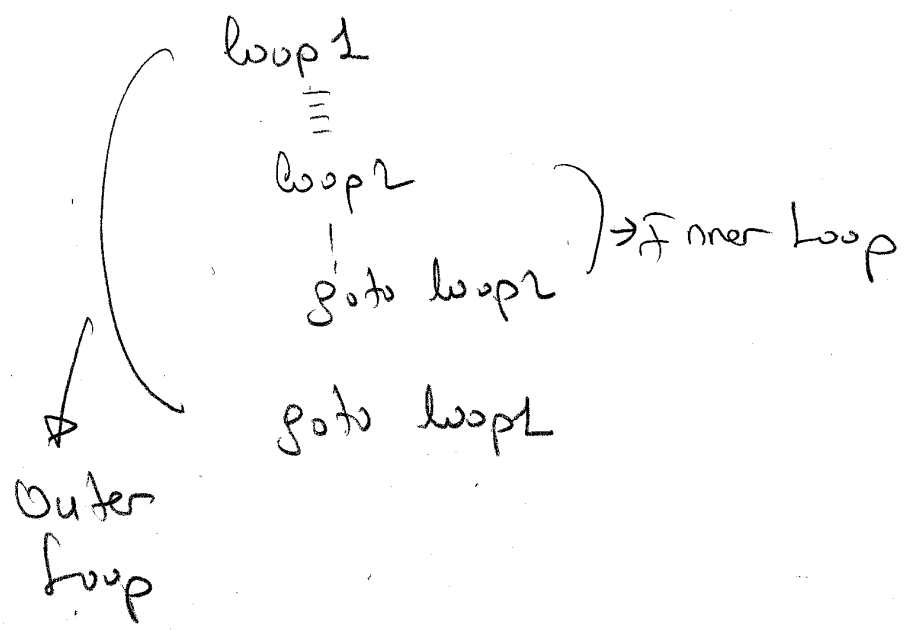 loop1
loop2
goto loop2
→ Inner Loop
goto loop1
Outer
Loop